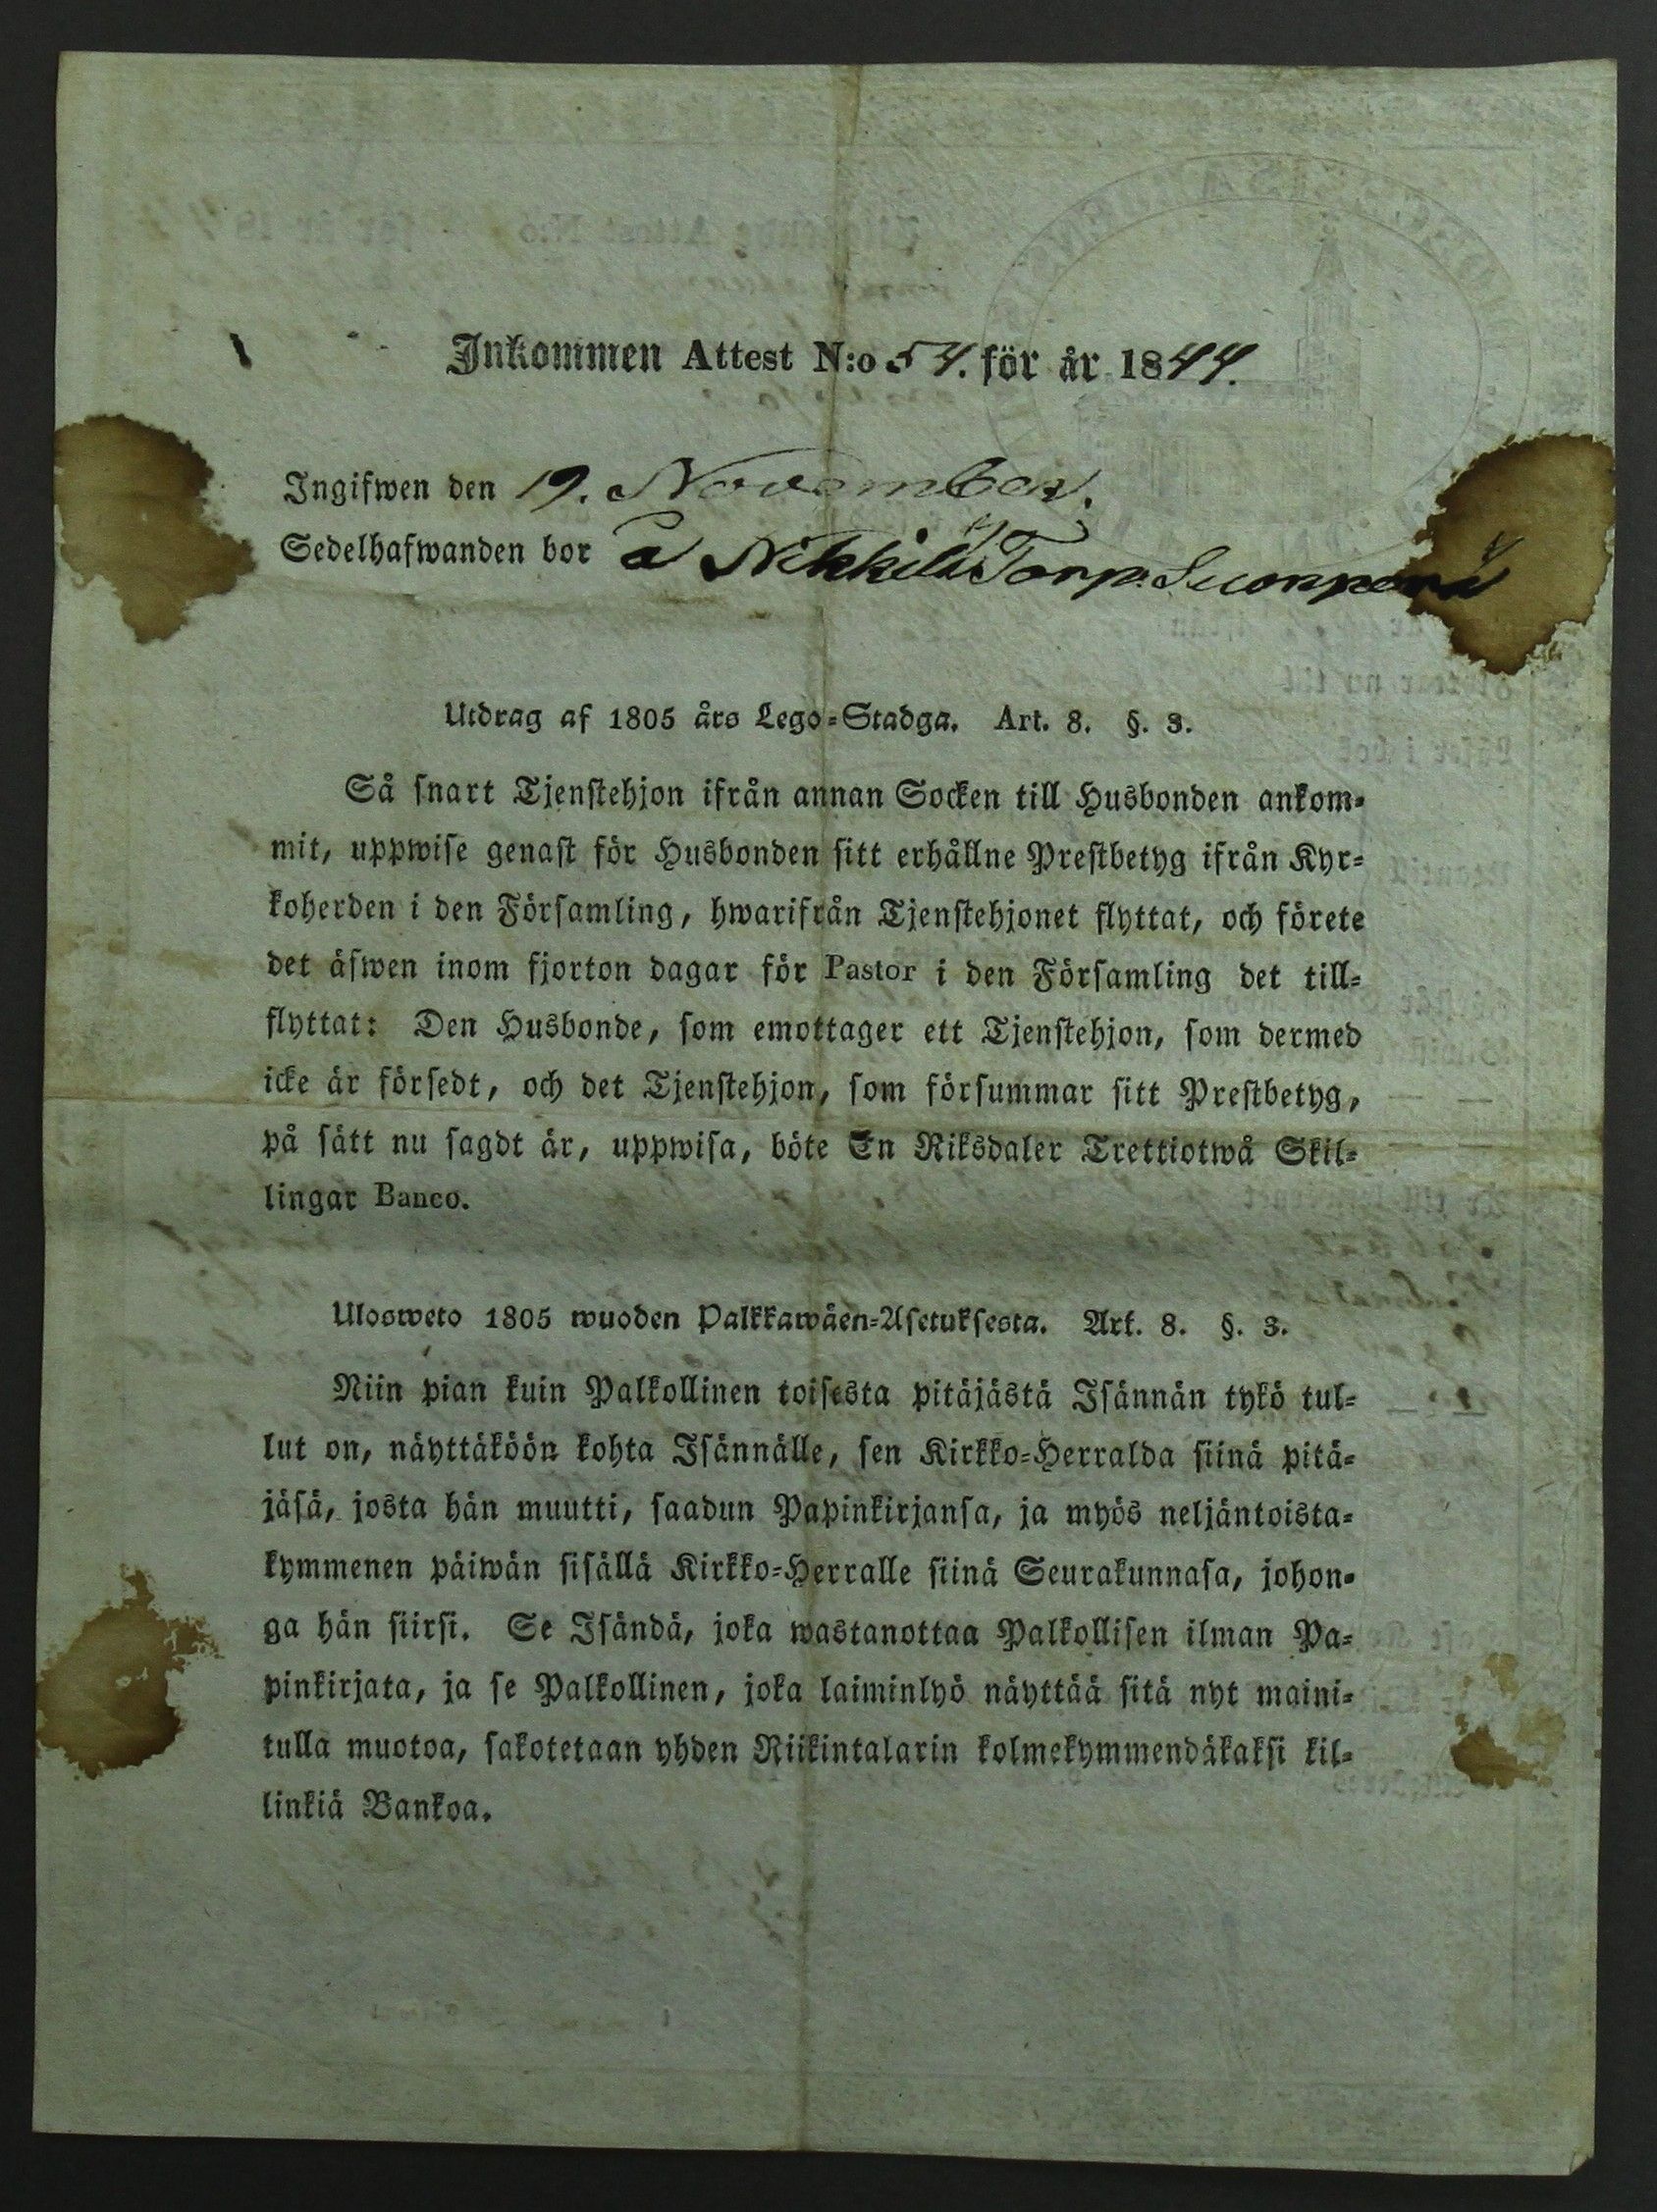 Inkommen Attest N:o 54. för år 1844.
Ingifwen den 19. November.
Sedelhafwanden bor å Nikkilä Torp. Suonperä
Utdrag af 1805 års Lego-Stadga. Art. 8. §. 3.
Så snart Tjenstehjon ifrån annan Socken till Husbonden ankom-
mit, uppwise genast för Husbonden sitt erhållne Prestbetyg ifrån Kyr-
koherden i den Församling, hwarifrån Tjenstehjonet flyttat, och förete
det äfwen inom fjorton dagar för Pastor i den Församling det till-
flyttat: Den Husbonde, som emottager ett Tjenstehjon, som dermed
icke är försedt, och det Tjenstehjon, som försummar sitt Prestbetyg,
på sätt nu sagdt är, uppwisa, böte En Riksdaler Trettiotwå Skil-
lingar Banco.
Ulosweto 1805 wuoden Palkkawäen-Asetuksesta. Art. 8. §. 3.
Niin pian kuin Palkollinen toisesta pitäjästä Isännän tykö tul-
lut on, näyttäköön kohta Isännälle, sen Kirkko-Herralda siinä pitä-
jäsä, josta hän muutti, saadun Papinkirjansa, ja myös neljäntoista-
kymmenen päiwän sisällä Kirkko-Herralle siinä Seurakunnasa, johon-
ga hän siirsi. Se Isändä, joka wastanottaa Palkollisen ilman Pa-
pinkirjata, ja se Palkollinen, joka laiminlyö näyttää sitä nyt maini-
tulla muotoa, sakotetaan yhden Riikintalarin kolmekymmendäkaksi kil-
linkiä Bankoa.